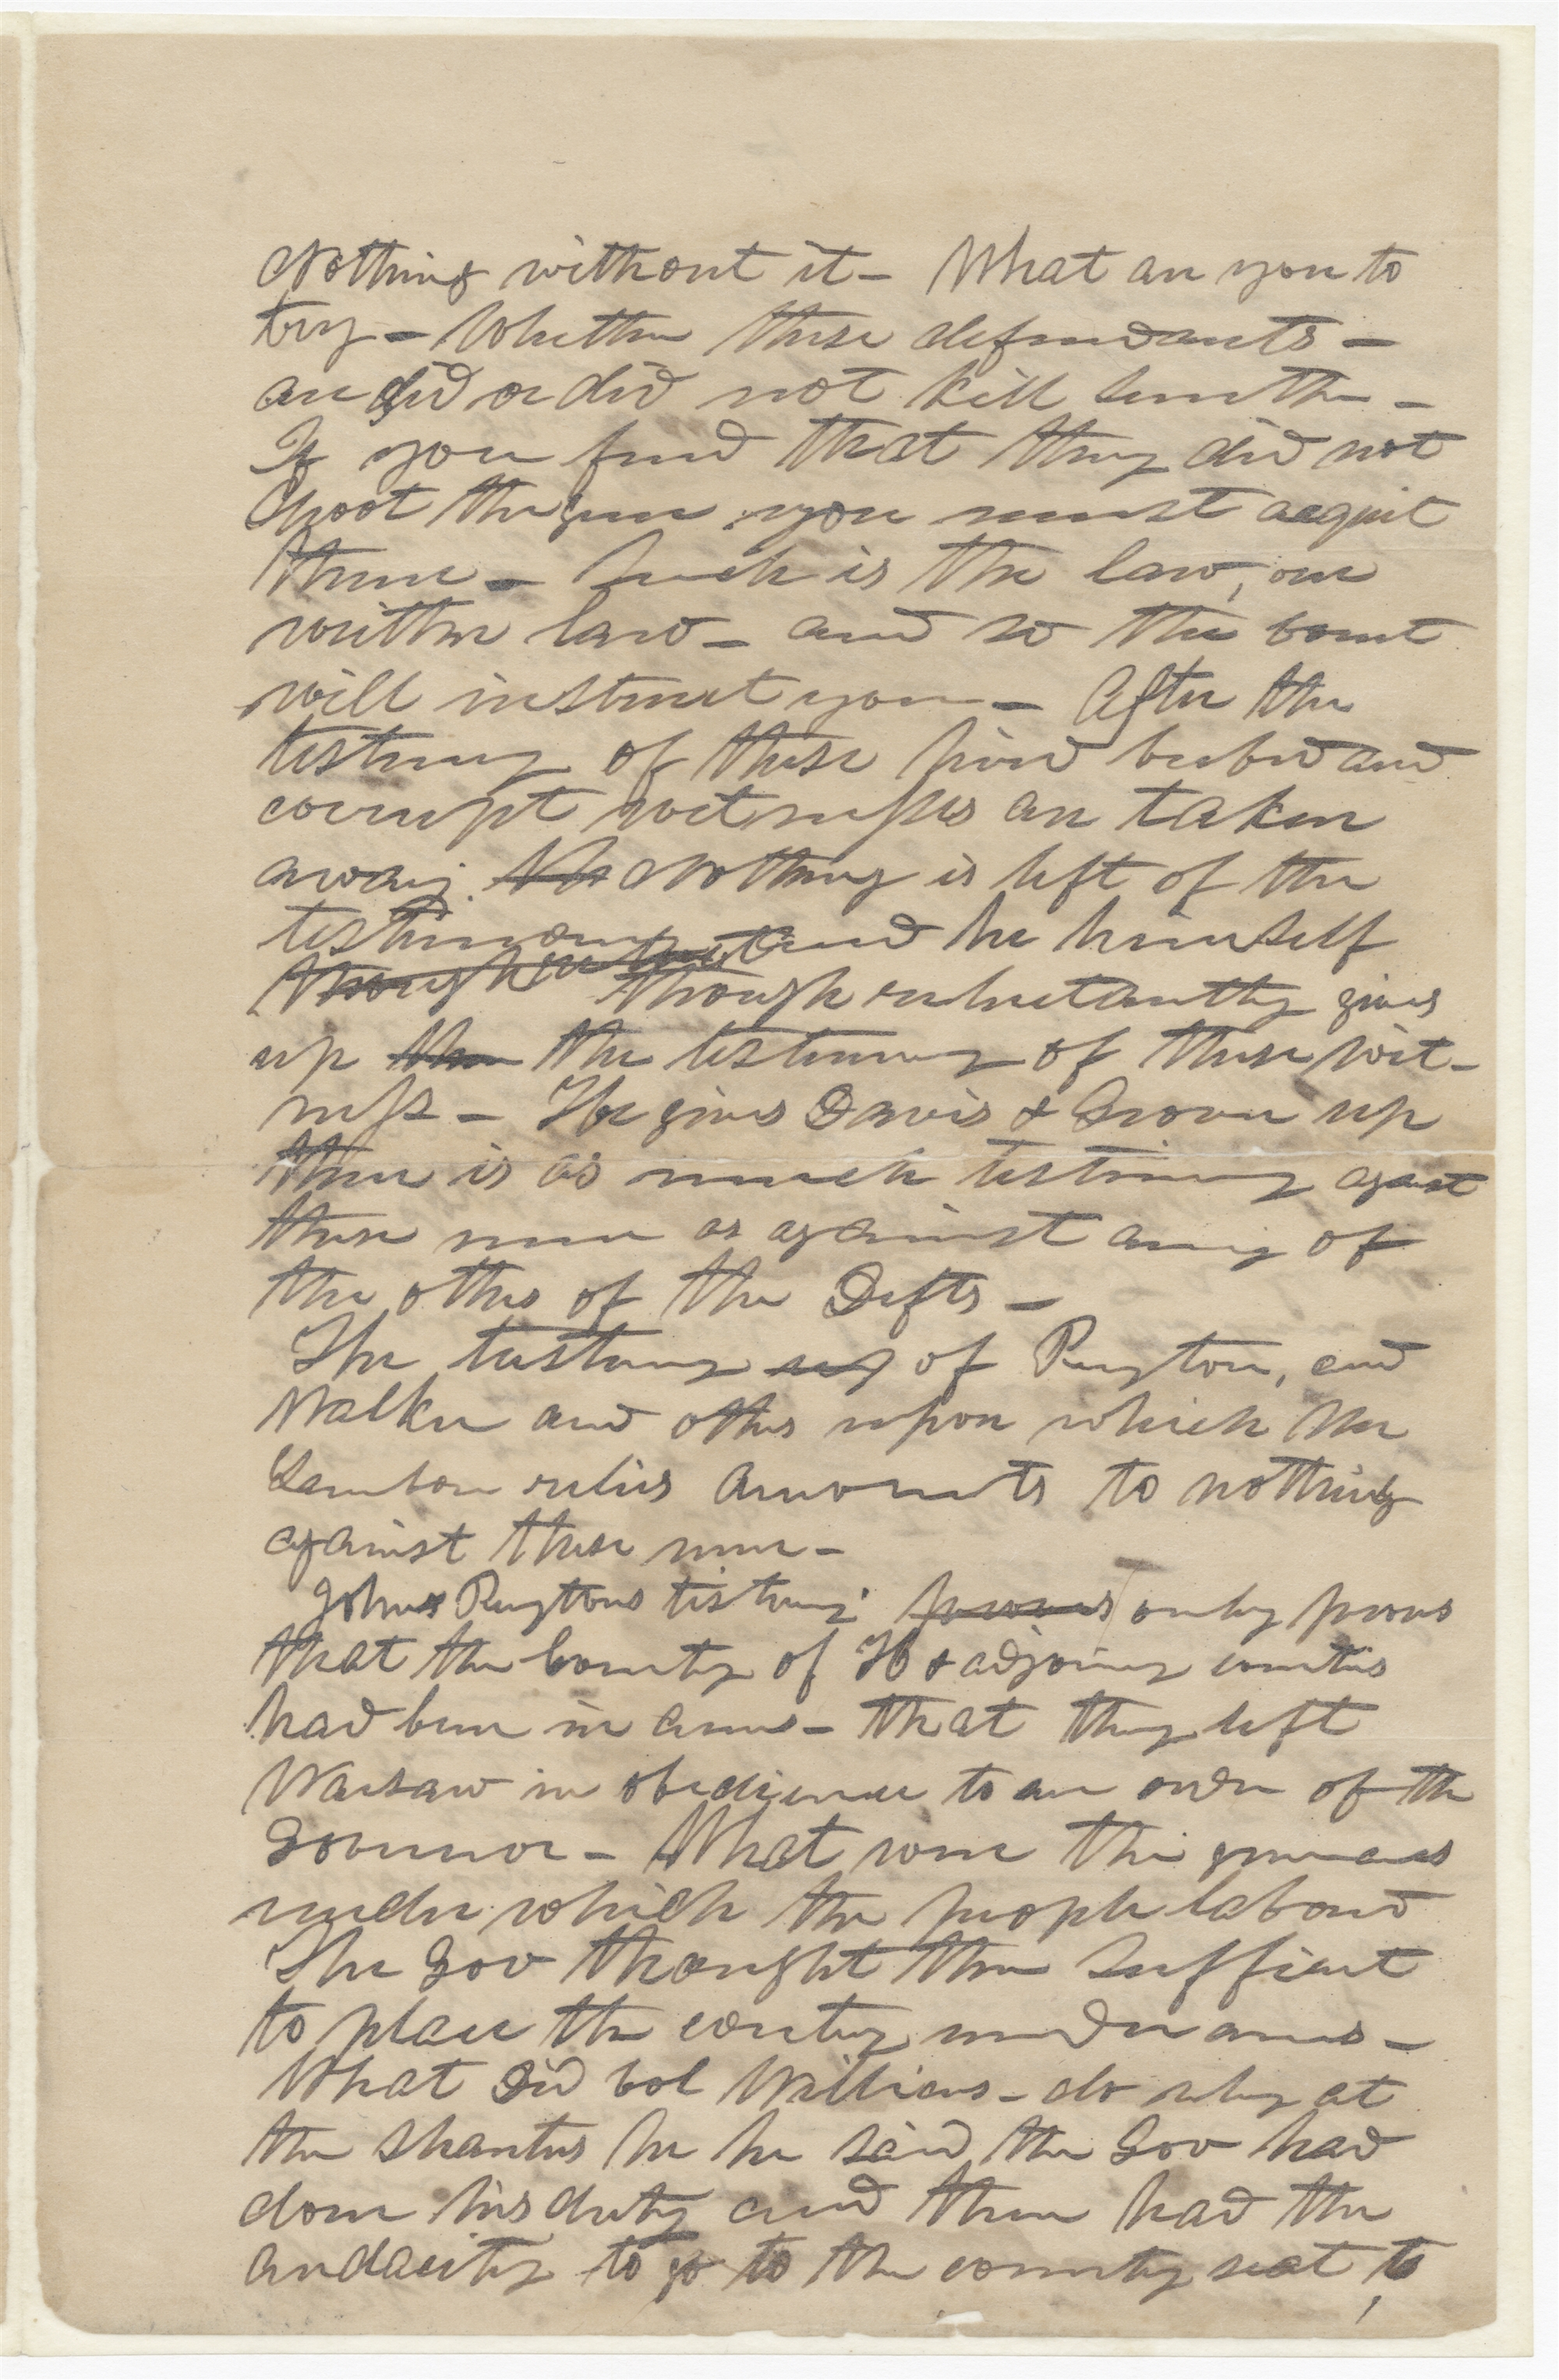 Nothing without it – What are you to
try – Whether these defendants –
are did or did not kill Smith –
If you find that they did not
shoot the gun you must acquit
them – Such is the law, our
written law – and so the Court
will instruct you – After the
testimony of these hired bribed and
corrupt witnesses are taken
away. Nothing is left of the
testimony and he himself
though reluctantly gives
up the the testimony of these wit-
ness – He gives Davis & Grover up
there is as much testimony against
these men as against any of
the others of the Defts –
The testimony of Peyton, and
Walker and others upon which Mr
Lamborn relies amounts to nothing
against these men –
John Peytons testimony only proves
that the County of H & adjoining counties
had been in arms – that they left
Warsaw in obedience to an order of the
Governor – What were the grievances
under which the people labored
The Gov thought them sufficient
to place the county under arms –
What did Col Williams – do why at
the shanties he he said the Gov had
done his duty and then had the
audacity to go to the county seat, to